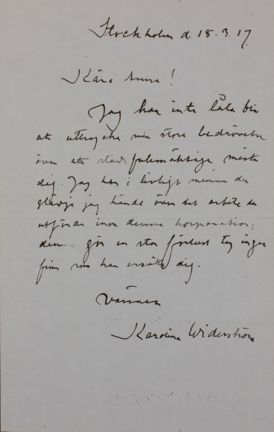 Stockholm d. 18.3.17.
Kära Anna!
Jag kan inte låta bli
att uttrycka min stora bedrövelse
över att stadsfullmäktige mista
dig. Jag har i livligt minne den
glädje jag hände över det arbete du
utförde inom denna korporation;
den gör en stor förlust ty ingen
finns som kan ersätta dig.
Vännen
Karolina Widerström